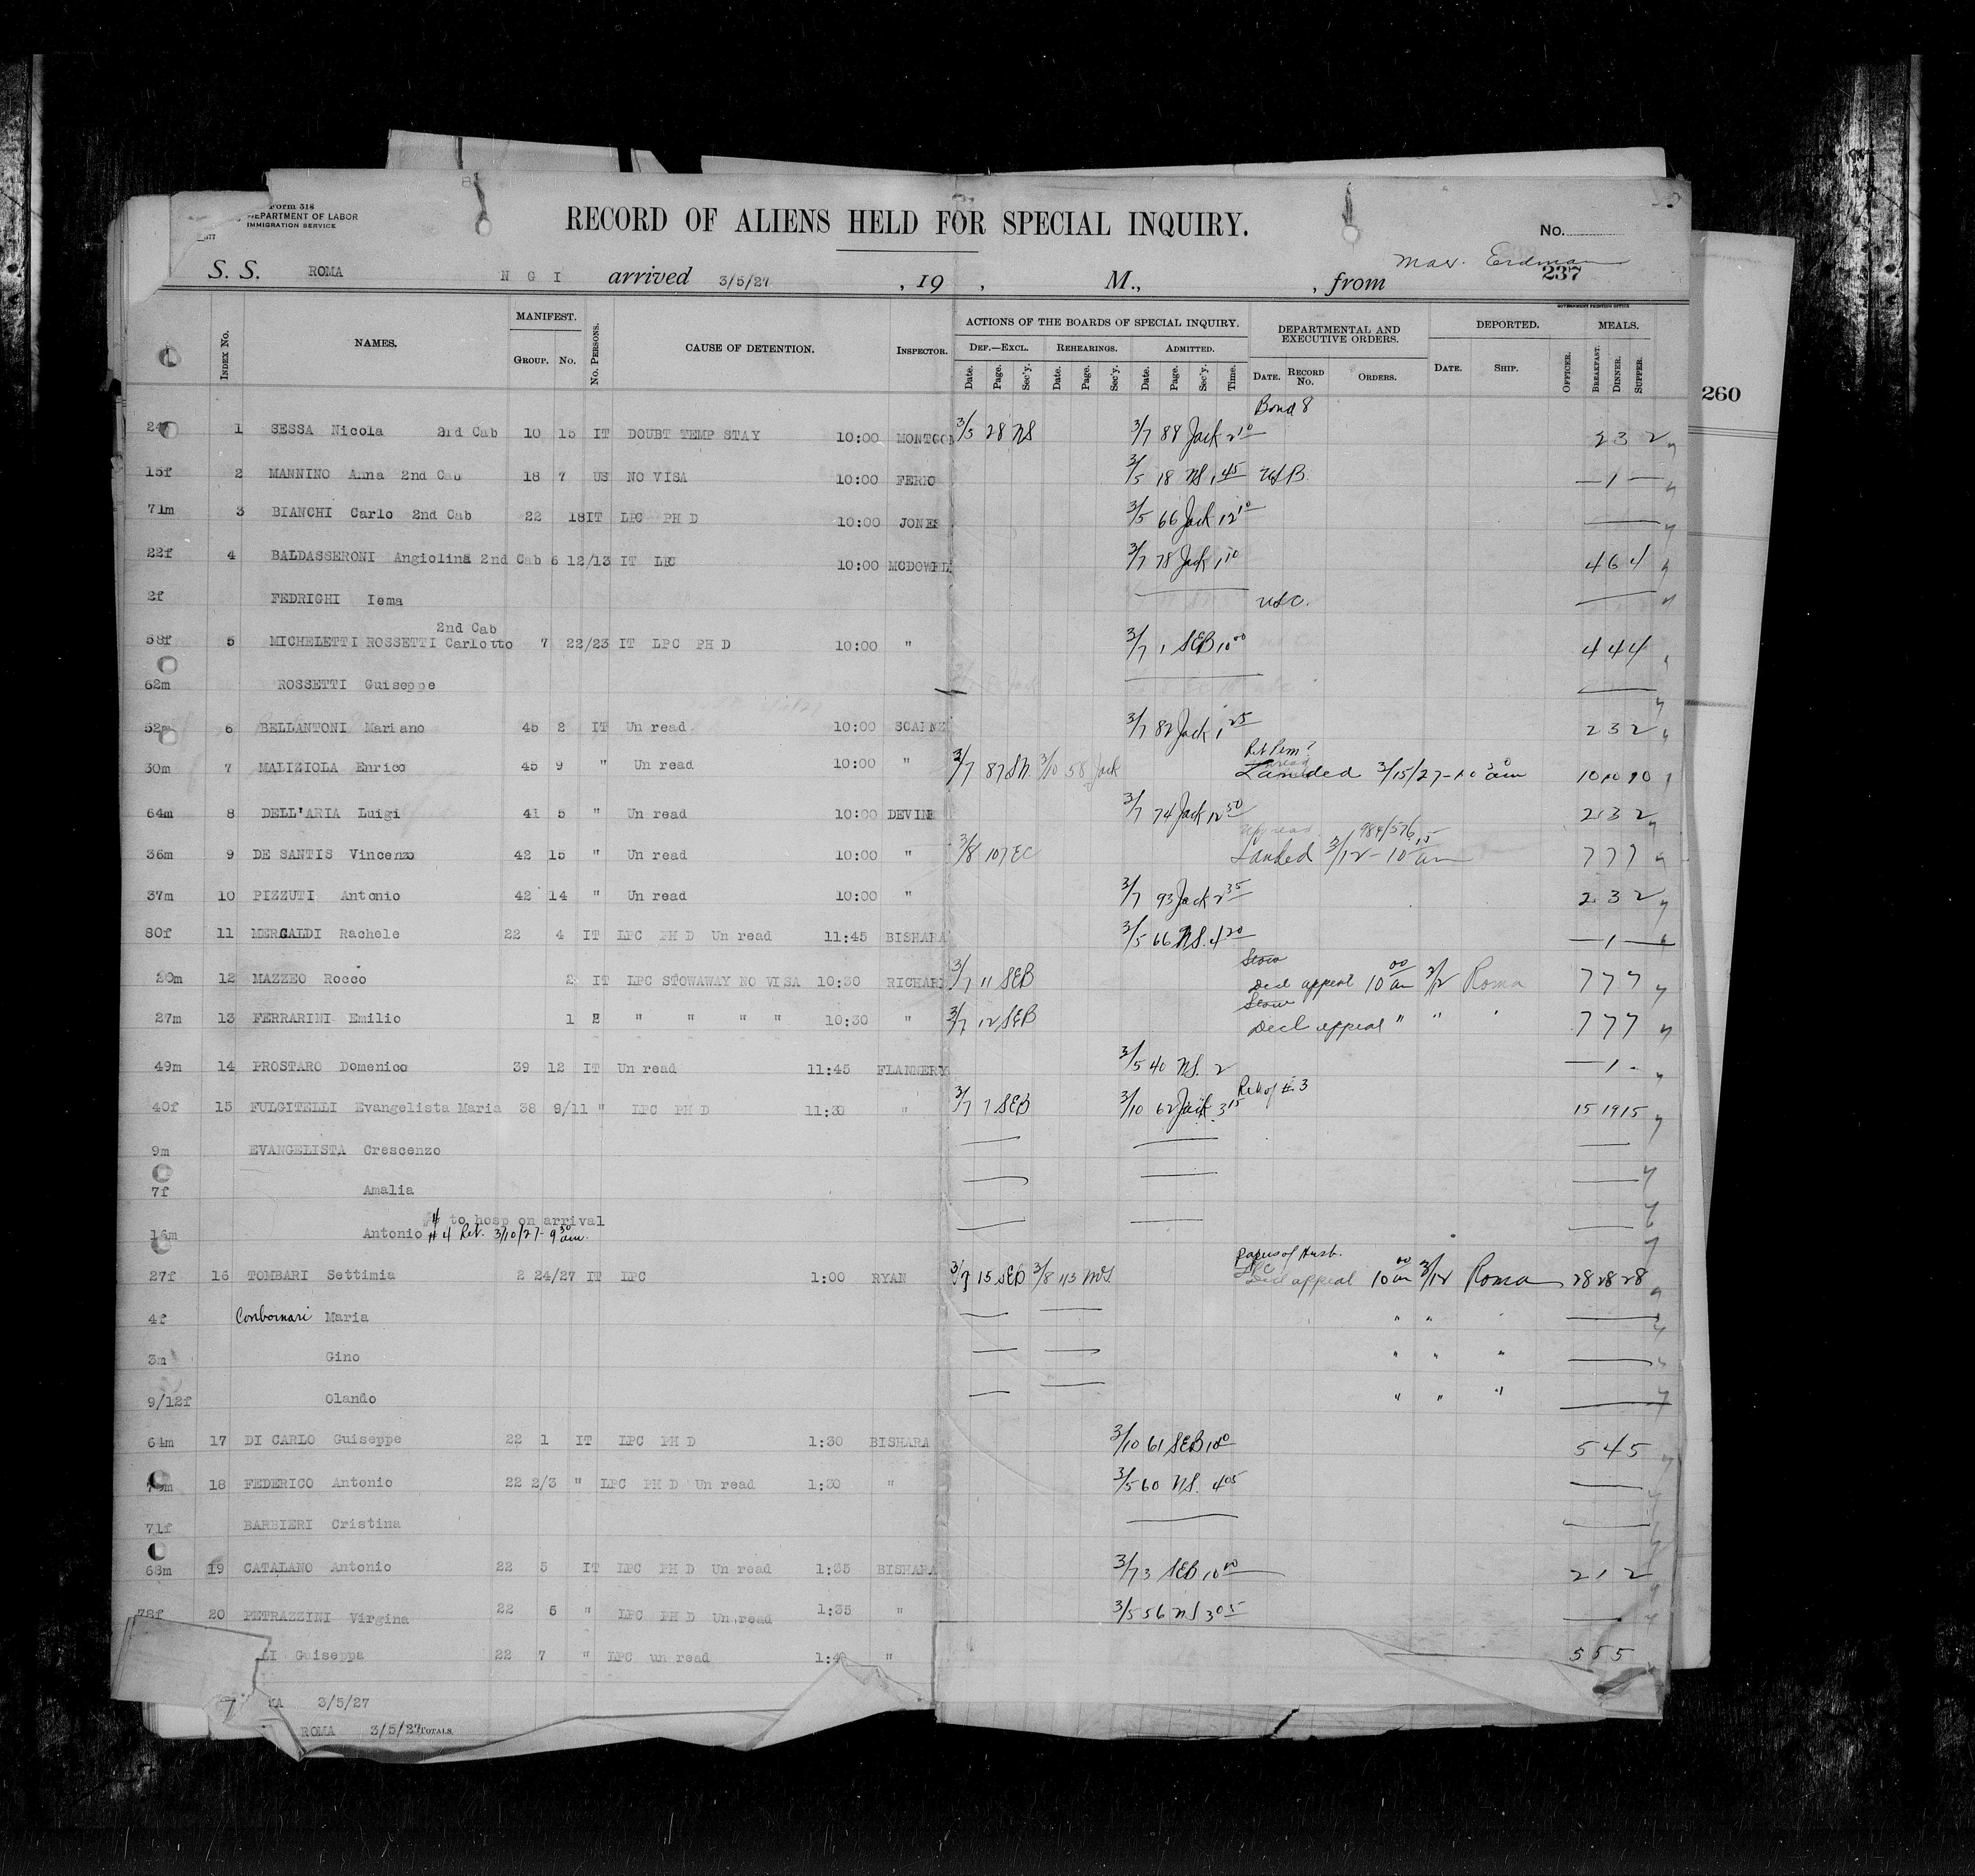 Form 518
DEPARTMENT OF LABOR
IMMIGRATION SERVICE
RECORD OF ALIENS HELD FOR SPECIAL INQUIRY.
No.
Max. Erdman
237
S. S. ROMA N G I arrived 3/5/27 , 19 , M., , from
GOVERNMENT PRINTING OFFICE
Index No. NAMES. MANIFEST. Group. No. No. Persons. CAUSE OF DETENTION. Inspector. ACTIONS OF THE BOARDS OF SPECIAL INQUIRY. DEPARTMENTAL AND EXECUTIVE ORDERS. DEPORTED. MEALS.
DEF.—EXCL. REHEARINGS. ADMITTED.
Date. Page. Sec'y. Date. Page. Sec'y. Date. Page. Sec'y. Time. DATE. RECORD No. ORDERS. DATE. SHIP. OFFICER. BREAKFAST. DINNER. SUPPER.
260
Bond 8
1 SESSA Nicola 2nd Cab 10 15 IT DOUBT TEMP STAY 10:00 MONTGOM 3/5 28 NS 3/7 88 Jack 2 10 2 3 2
15f 2 MANNINO Anna 2nd Cab 18 7 US NO VISA 10:00 FERRO 3/5 18 NS 1 45 USB — 1 —
71m 3 BIANCHI Carlo 2nd Cab 22 18 IT LPC PH D 10:00 JONES 3/5 66 Jack 12 10
22f 4 BALDASSERONI Angiolina 2nd Cab 6 12/13 IT LPC 10:00 MCDOWEL 3/7 78 Jack 1 10 4 6 4
2f FEDRIGHI Iema USC.
2nd Cab
58f 5 MICHELETTI ROSSETTI Carlotto 7 22/23 IT LPC PH D 10:00 " 3/7 1 SEB 10 00 4 4 4
62m ROSSETTI Guiseppe
52m 6 BELLANTONI Mariano 45 2 IT Un read 10:00 3/7 82 Jack 1 25 2 3 2
30m 7 MALIZIOLA Enrico 45 9 " Un read 10:00 " 3/7 87 SN. 3/10 58 Jack Landed 3/15/27-10 30 am 10 10 10
64m 8 DELL'ARIA Luigi 41 5 " Un read 10:00 DEVINE 3/7 74 Jack 12 50 2 3 2
984/576
36m 9 DE SANTIS Vincenzo 42 15 " Un read 10:00 " 3/8 107 EC Landed 3/12 - 10 15 am 7 7 7
37m 10 PIZZUTI Antonio 42 14 " Un read 10:00 " 3/7 93 Jack 2 35 2 3 2
80f 11 MERCALDI Rachele 22 4 IT LPC PH D Un read 11:45 BISHARA 3/5 66 NS. 4 20 — 1 —
Stow
20m 12 MAZZEO Rocco 2 IT LPC STOWAWAY NO VISA 10:30 RICHARD 3/7 11 SEB Decl appeal 10 00 am 3/12 Roma 7 7 7
Stow
27m 13 FERRARINI Emilio 1 " " " " 10:30 " 3/7 12 SEB Decl appeal " " " 7 7 7
49m 14 PROSTARO Domenico 39 12 IT Un read 11:45 FLANNERY 3/5 40 NS. 2 — 1 -
40f 15 FULGITELLI Evangelista Maria 38 9/11 " LPC PH D 11:30 " 3/7 7 SEB 3/10 62 Jack 3 15 Rel of #3 15 19 15
9m EVANGELISTA Crescenzo
7f Amalia
#4 to hosp on arrival
16m Antonio #4 Ret. 3/10/27- 9 30 am.
Papers of Husb.
27f 16 TOMBARI Settimia 2 24/27 IT LPC 1:00 RYAN 3/7 15 SEB 3/8 113 McS LPC Decl appeal 10 00 am 3/12 Roma 28 28 28
4f Maria " "
3m Gino " " "
9/12f Olando " " "
64m 17 DI CARLO Guiseppe 22 1 IT LPC PH D 1:30 BISHARA 3/10 61 SEB 10 00 5 4 5
18 FEDERICO Antonio 22 2/3 " LPC PH D Un read 1:30 " 3/5 60 NS. 4 05
71f BARBIERI Cristina
68m 19 CATALANO Antonio 22 5 IT LPC PH D Un read 1:35 BISHARA 3/7 3 SEB 10 00 2 1 2
78f 20 PETRAZZINI Virgina 22 6 " LPC PH D Un read 1:35 " 3/5 56 NS 3 05
LI Guiseppa 22 7 " LPC un read " 5 5 5
MA 3/5/27
ROMA 3/5/27 TOTALS.